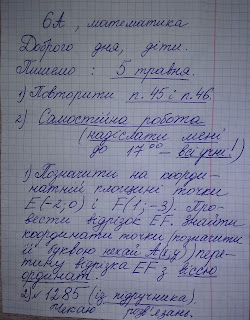 6А, математика
Доброго дня, діти.
Пишемо: 5 травня.
1) Повторити п.45 і п.46.
2) Самостійна робота
(надіслати мені
до 17⁰⁰ - всі учні!)
1) Позначити на коорди-
натній площині точки
E(-2;0) і F(1;-3). Про-
вести відрізок EF. Знайти
координати точки (позначити
її буквою нехай A(x;y)) пере-
тину відрізка EF з віссю
ординат.
2) № 1285 (із підручника).
Чекаю розв'язань.